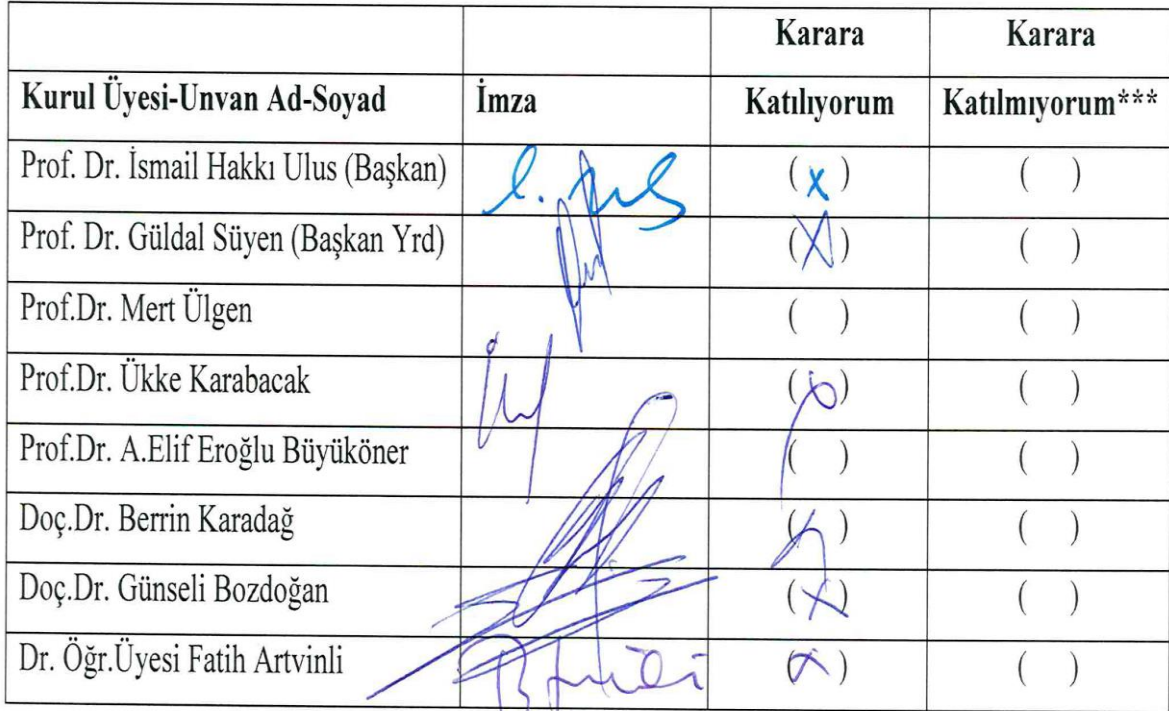 Karara Karara
Kurul Üyesi-Unvan Ad-Soyad İmza Katılıyorum Katılmıyorum***
Prof. Dr. İsmail Hakkı Ulus (Başkan) (x) ( )
Prof. Dr. Güldal Süyen (Başkan Yrd) (X) ( )
Prof.Dr. Mert Ülgen ( ) ( )
Prof.Dr. Ükke Karabacak ( ) ( )
Prof.Dr. A.Elif Eroğlu Büyüköner ( ) ( )
Doç.Dr. Berrin Karadağ ( ) ( )
Doç.Dr. Günseli Bozdoğan (x) ( )
Dr. Öğr.Üyesi Fatih Artvinli (x) ( )